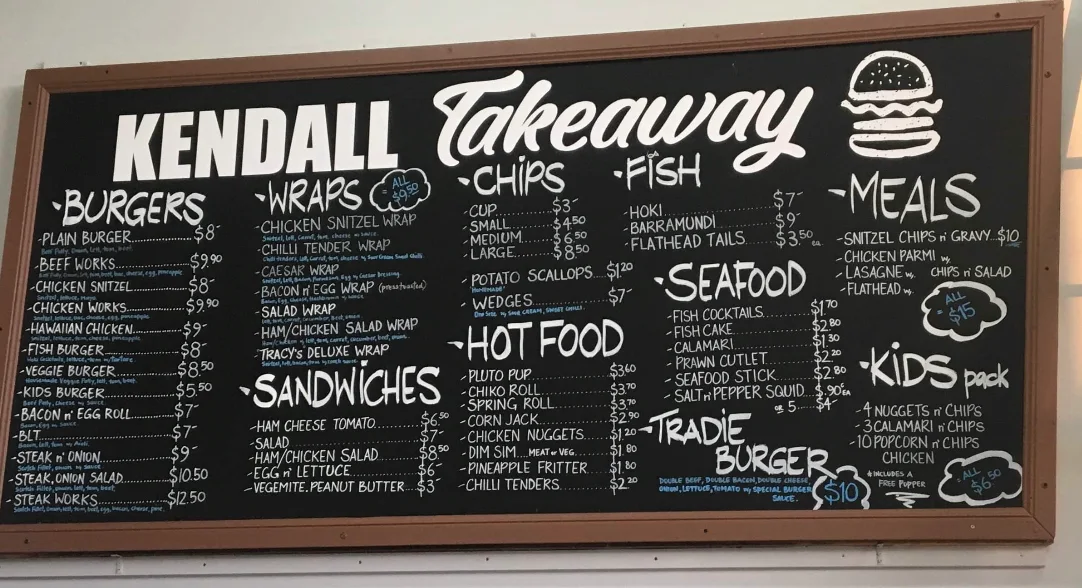 KENDALL Takeaway
BURGERS
-PLAIN BURGER $8-
Beef Patty, Onion, Lett, tom, beet.
-BEEF WORKS $9.90
-CHICKEN SNITZEL $8-
Snitzel, lettuce, mayo.
-CHICKEN WORKS $9.90
-HAWAIIAN CHICKEN $9-
Snitzel, lettuce, tom, cheese, pineapple.
-FISH BURGER $8-
-VEGGIE BURGER $8.50
Homemade Veggie Patty, lett, tom, beet.
-KIDS BURGER $5.50
Beef Patty, Cheese w sauce.
-BACON n' EGG ROLL $7-
Bacon, Egg w Sauce.
-BLT $7-
-STEAK n' ONION $9-
Scotch fillet, onion w sauce
-STEAK, ONION SALAD $10.50
Scotch fillet, onion, lett, tom, beet.
-STEAK WORKS $12.50
WRAPS
ALL = $9.50
-CHICKEN SNITZEL WRAP
Snitzel, lett, carrot, tom, cheese w sauce.
-CHILLI TENDER WRAP
Chilli tenders, lett, carrot, tom, cheese w Sour Cream Sweet Chilli
-CAESAR WRAP
-BACON n' EGG WRAP (press toasted)
-SALAD WRAP
-HAM/CHICKEN SALAD WRAP
-TRACY's DELUXE WRAP
SANDWICHES
-HAM CHEESE TOMATO $6.50
-SALAD $7-
-HAM/CHICKEN SALAD $8.50
-EGG n' LETTUCE $6-
-VEGEMITE. PEANUT BUTTER $3-
CHIPS
-CUP $3-
-SMALL $4.50
-MEDIUM $6.50
-LARGE $8.50
-POTATO SCALLOPS $1.20
HOMEMADE
-WEDGES $7-
One Size w Sour Cream, Sweet Chilli.
HOT FOOD
-PLUTO PUP $3.60
-CHIKO ROLL $3.70
-SPRING ROLL $3.70
-CORN JACK $2.90
-CHICKEN NUGGETS $1.20
-DIM SIM MEAT or VEG. $1.80
-PINEAPPLE FRITTER $1.80
-CHILLI TENDERS $2.20
FISH
-HOKI $7-
-BARRAMUNDI $9-
-FLATHEAD TAILS $3.50 ea.
SEAFOOD
-FISH COCKTAILS $1.70
-FISH CAKE $2.80
-CALAMARI $1.30
-PRAWN CUTLET $2.20
-SEAFOOD STICK $2.80
-SALT n' PEPPER SQUID .90c EA
OR 5 $4-
TRADIE BURGER
DOUBLE BEEF, DOUBLE BACON, DOUBLE CHEESE
ONION, LETTUCE, TOMATO w SPECIAL BURGER
SAUCE.
$10
MEALS
-SNITZEL CHIPS n' GRAVY $10
-CHICKEN PARMI w
-LASAGNE w CHIPS n' SALAD
-FLATHEAD w
ALL = $15
KIDS pack
-4 NUGGETS n' CHIPS
-3 CALAMARI n' CHIPS
-10 POPCORN n' CHIPS
CHICKEN
* INCLUDES A
FREE POPPER
ALL = $6.50